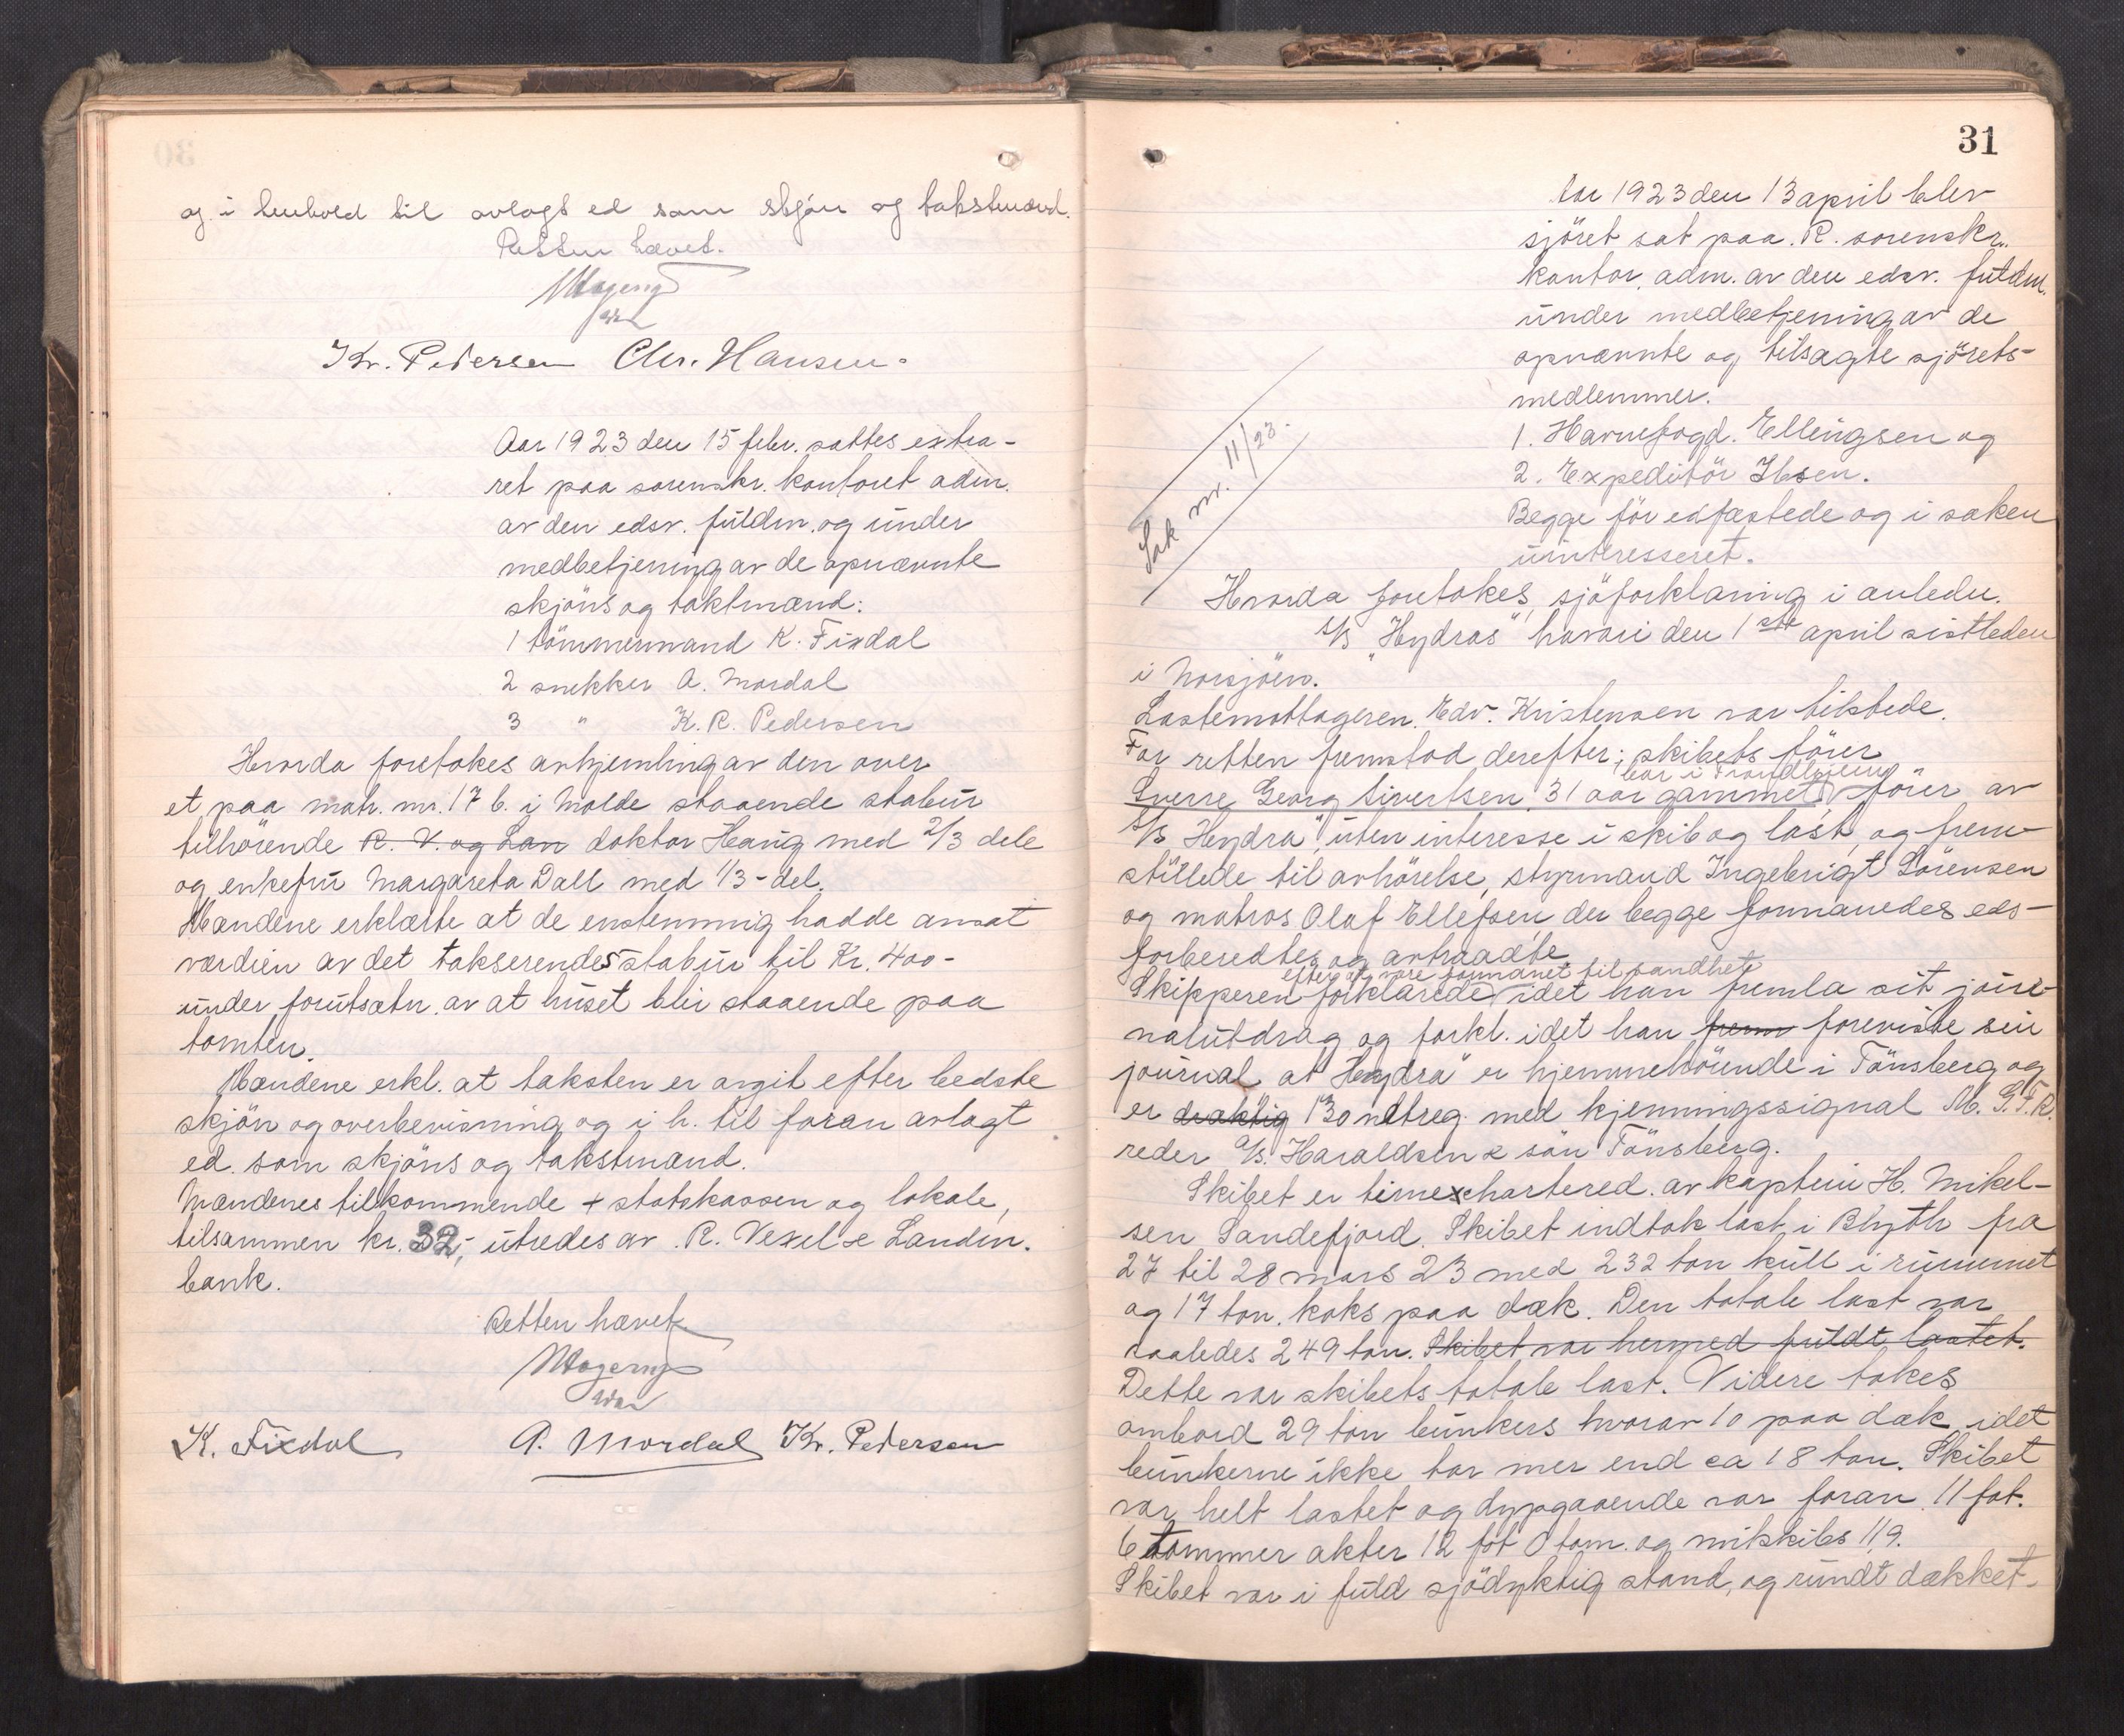 og i henhold til avlagt ed som skjön og takstmænd.
Retten hævet.
Kr. Pedersen Chr. Hansen.
Aar 1923 den 15 febr. sattes extra-
ret paa sorenskr. kontoret adm.
av den edsv. fuldm. og under
medbetjening av de opnævnte
skjöns og taktmænd:
1 tömmermand K. Fixdal
2 snekker A. Mordal
3 " K. R. Pedersen
Hvorda foretokes avhjemling av den over
et paa matr. nr. 17 b. i Molde staaende stabur
tilhörende R. V. og Lan doktor Haug med 2/3 dele
og enkefru Margareta Dall med 1/3-del.
Mændene erklærte at de enstemmig hadde ansat
værdien av det takserendes stabur til Kr. 400-
under forutsætn. av at huset blir staaende paa
tomten.
Mændene erkl. at taksten er avgit efter bedste
skjön og overbevisning og i h. til foran avlagt
ed som skjöns og takstmænd.
Mændenes tilkommende + statskassen og lokale,
tilsammen kr. 32,- utredes av R. Vexel & Landm.
bank.
Retten hævet
K. Fixdal A. Mordal Kr. Pedersen
31
Aar 1923 den 13 april blev
sjöret sat paa R. sorenskr.
kontor, adm. av den edsv. fuldm.
under medbetjening av de
opnævnte og tilsagte sjörets-
medlemmer.
1. Havnefogd. Ellingsen og
2. Expeditör Ibsen.
Begge för edfæstede og i saken
uinteresseret.
Sak nr. 11/23.
Hvorda foretokes sjöforklaring i anledn.
s/s "Hydras" havari den 1ste april sistleden
i Norsjöen.
Lastemottageren Edv. Kristensen var tilstede.
For retten fremstod derefter; skibets förer
bor i Trondhjem
Sverre Georg Sivertsen, 31 aar gammel, förer av
s/s Hydra", uten interesse i skib og last, og frem-
stillede til avhörelse, styrmand Ingebrigt Sörensen
og matros Olaf Ellefsen, der begge formanedes eds-
forberedtes og avtraadte.
efter at være formanet til sandhet
Skipperen forklarede idet han fremla sit jour-
nalutdrag og forkl. idet han frem foreviste sin
journal at "Hydra" er hjemmehörende i Tönsberg og
er dræktig 130 nttreg. med kjenningssignal M. G. F. R.
reder a/s. Haraldsen & sön Tönsberg.
Skibet er timexchartered. av kaptein H. Mikel-
sen Sandefjord. Skibet indtok last i Blyth fra
27 til 28 mars 23 med 232 ton kull i rummet
og 17 ton. koks paa dæk. Den totale last var
saaledes 249 ton. Skibet var hermed fuldt lastet.
Dette var skibets totale last. Videre tokes
ombord 29 ton bunkers hvorav 10 paa dæk, idet
bunkerne ikke tar mer end ca 18 ton. Skibet
var helt lastet og dypgaaende var foran 11 fot.
6 tommer akter 12 fot 0 tom. og mitskibs 11,9.
Skibet var i fuld sjödyktig stand, og rundt dækket-